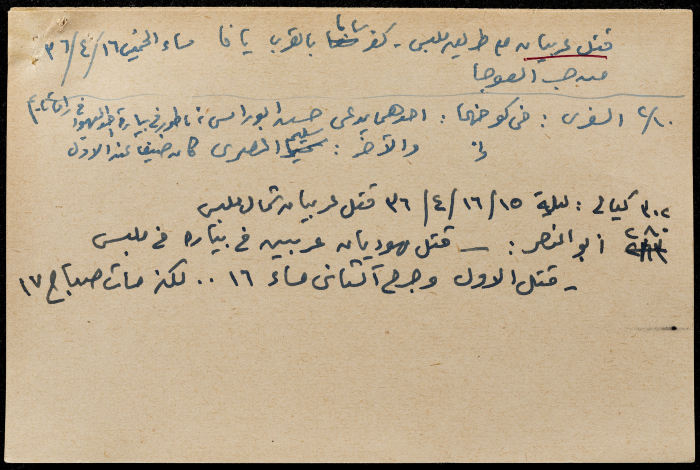 قتل عربيان على طريق ملبس - كفر سابا بالقرب يافا مساء الخميس ٣٦/٤/١٦
من جب العوجا
٢/١٠ السفري : في كوخهما : احدهما يدعى حسن ابو راس ناطور في بيارة
والآخر : سليم المصري كان ضيفا عند الاول
٣٠٢ كيالي : ليلة ١٥/١٦/٤/٣٦ قتل عربيان شمال ملبس
٢٨٠ ابو النصر : — قتل يهوديان عربيين في بيارة في ملبس
- قتل الاول وجرح الثاني مساء ١٦ .. لكنه مات صباح ١٧